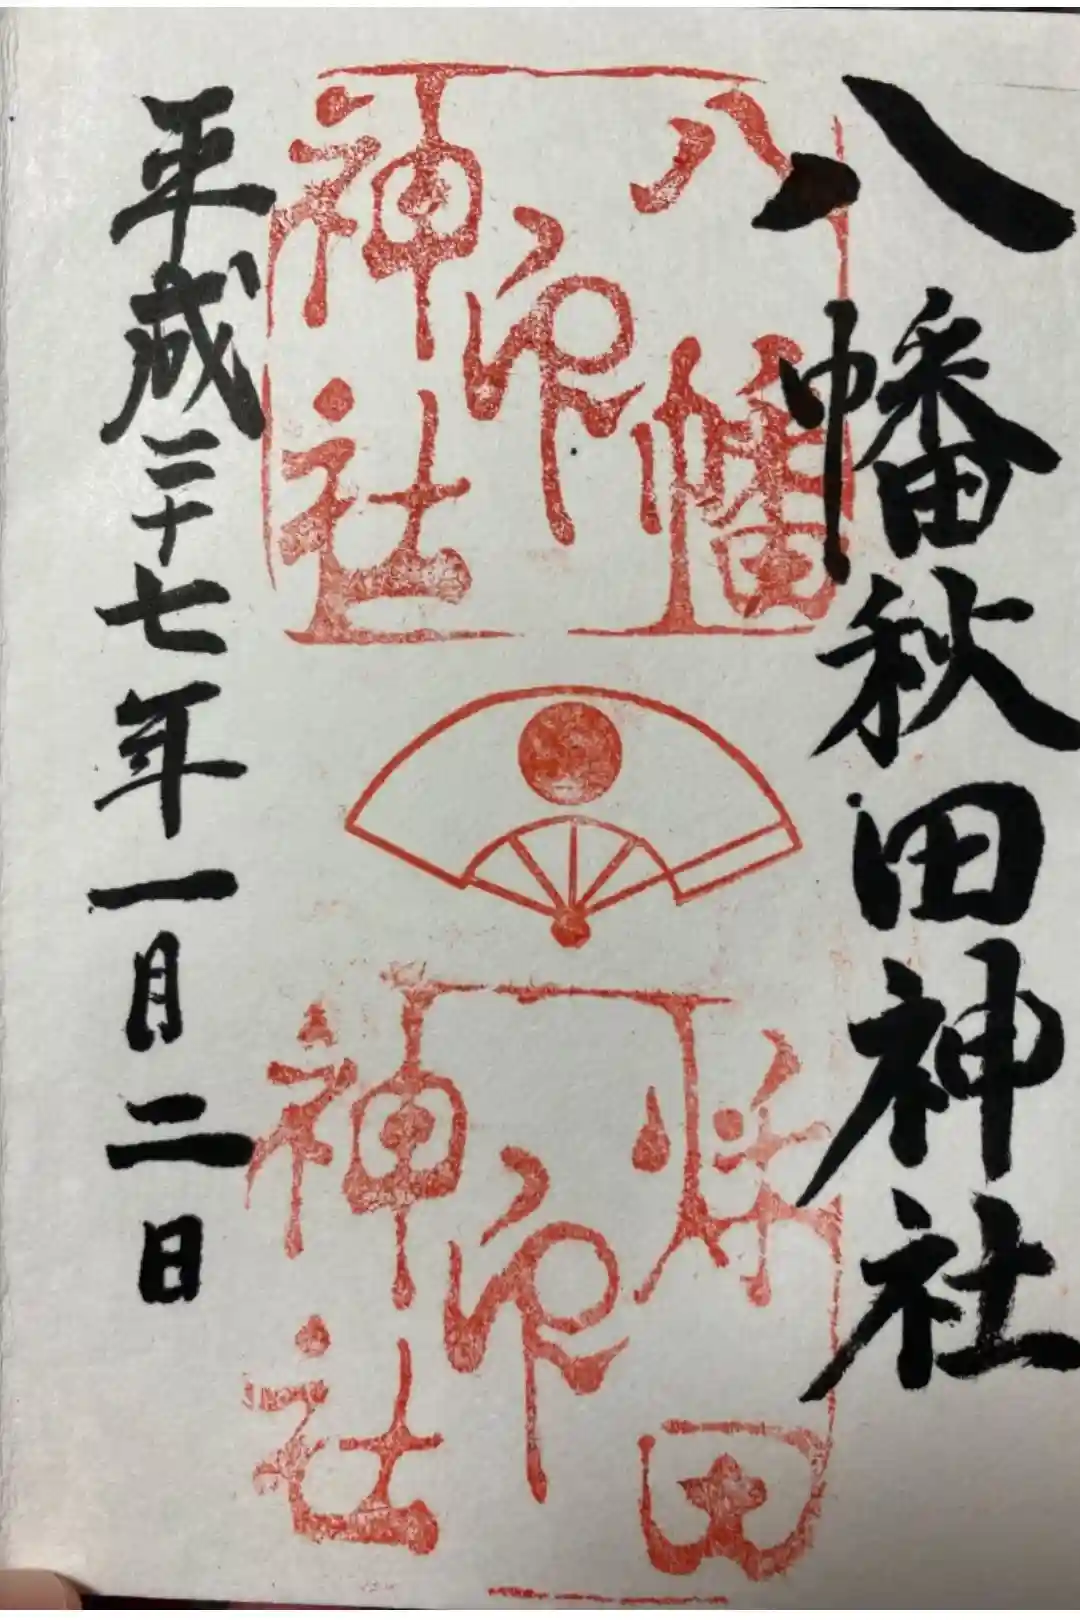 八幡秋田神社
八幡
神社
印
秋田
神社
印
平成二十七年一月二日